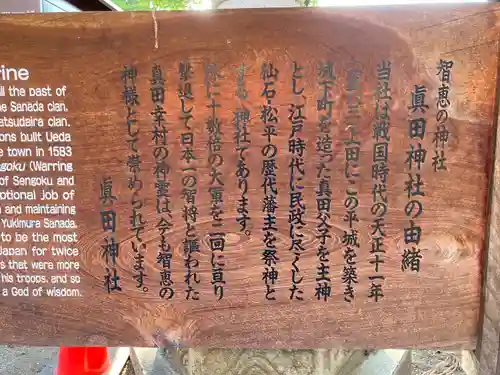 智恵の神社
眞田神社の由緒
当社は戦国時代の天正十一年
(一五八三)上田にこの平城を築き
城下町を造った真田父子を主神
とし、江戸時代に民政に尽くした
仙石・松平の歴代藩主を祭神
とする神社であります。
殊に十数倍の大軍を二回に亘り
撃退して日本一の智将と謳われた
真田幸村の神霊は、今も智恵の
神様として崇められています。
眞田神社
rine
ll the past of
e Sanada clan,
atsudaira clan.
ons built Ueda
e town in 1583
ngoku (Warring
of Sengoku and
ptional Job of
n and maintaining
Yukimura Sanada,
to be the most
Japan for twice
s that were more
his troops, and so
a God of wisdom.